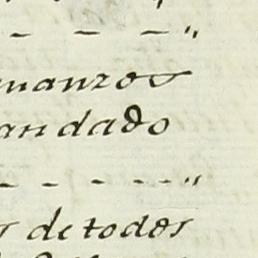 - - - "
manzos
andado
- - - - "
s de todos